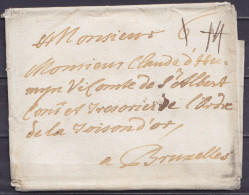 A Monsieur
Monsieur Claude d'Hu-
myn Vicomte de St Albert
Conser et Tresorier de l'ordre
de la Toison d'or
a Bruxelles